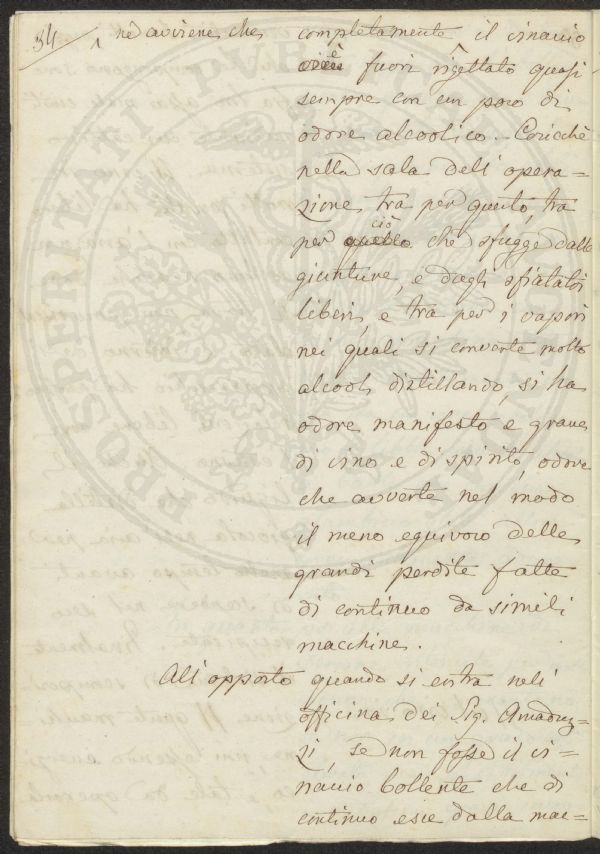 34
ne avviene che completamente il vinavio
è fuori rigettato quasi
sempre con un poco di
odore alcoolico. Cosicchè
nella sala dell'opera=
zione, tra per questo, tra
per quello ciò che sfugge dalle
giunture, e dagli sfiatatoi
liberi, e tra per i vapori
nei quali si converte molto
alcool distillando, si ha
odore manifesto e grave
di vino e di spirito, odore
che avverte nel modo
il meno equivoco delle
grandi perdite fatte
di continuo da simili
macchine.
All'opposto quando si entra nell'
officina dei Sig. Amaduz=
zi, se non fosse il vi=
navio bollente che di
continuo esce dalla mac=
PROSPERITATI PUBLICAE